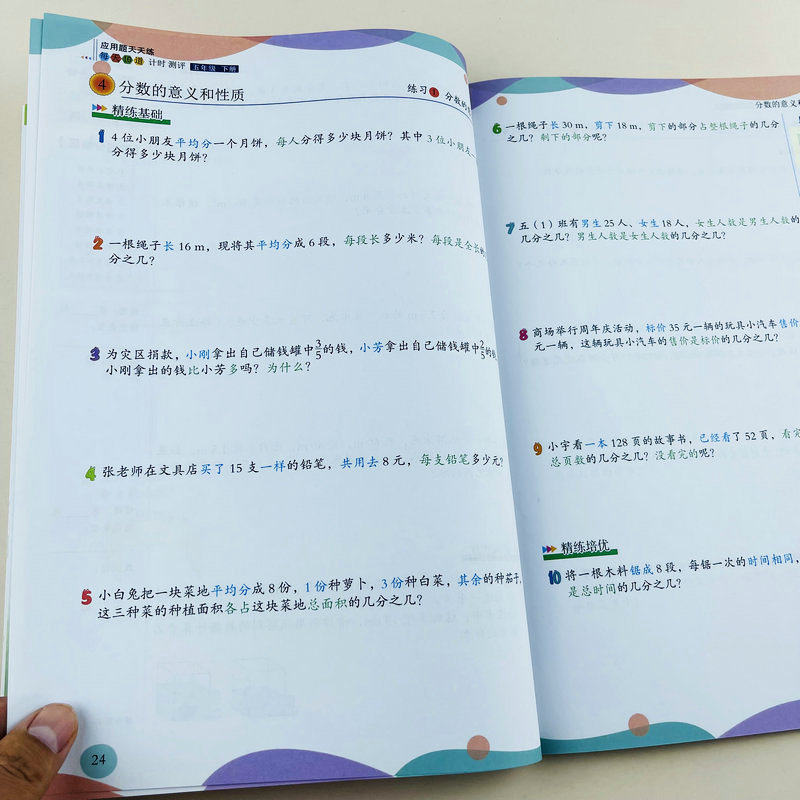 应用题天天练
每天10道 计时测评 五年级 下册
4 分数的意义和性质
练习1 分数的
精练基础
1 4位小朋友平均分一个月饼，每人分得多少块月饼？其中3位小朋友
分得多少块月饼？
2 一根绳子长16 m，现将其平均分成6段，每段长多少米？每段是全长的
分之几？
3 为灾区捐款，小刚拿出自己储钱罐中3/5的钱，小芳拿出自己储钱罐中2/5的
小刚拿出的钱比小芳多吗？为什么？
4 张老师在文具店买了15支一样的铅笔，共用去8元，每支铅笔多少元？
5 小白兔把一块菜地平均分成8份，1份种萝卜，3份种白菜，其余的种茄子，
这三种菜的种植面积各占这块菜地总面积的几分之几？
24
分数的意义和
6 一根绳子长30 m，剪下18 m，剪下的部分占整根绳子的几分
之几？剩下的部分呢？
7 五（1）班有男生25人、女生18人，女生人数是男生人数的
几分之几？男生人数是女生人数的几分之几？
8 商场举行周年庆活动，标价35元一辆的玩具小汽车售价
元一辆，这辆玩具小汽车的售价是标价的几分之几？
9 小宇看一本128页的故事书，已经看了52页，看完
总页数的几分之几？没看完的呢？
精练培优
10 将一根木料锯成8段，每锯一次的时间相同，
是总时间的几分之几？